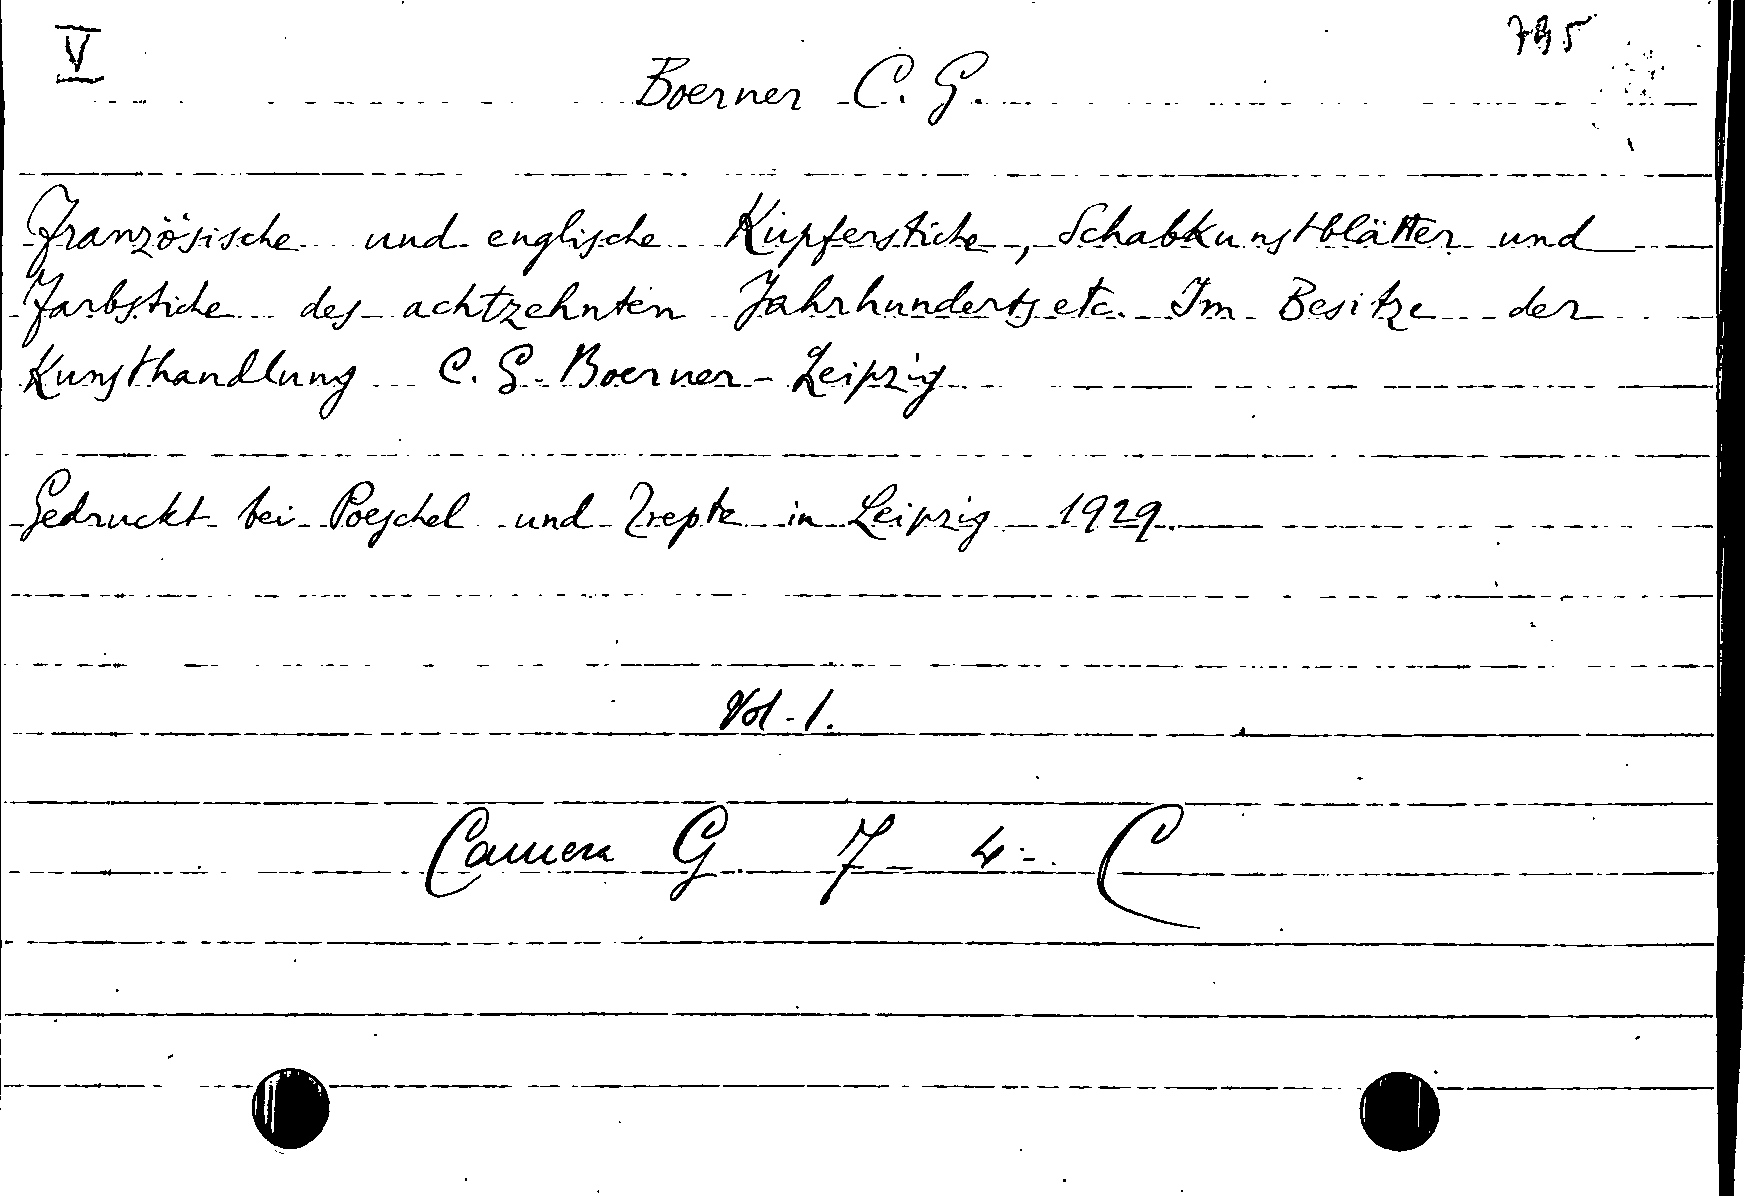 V
795
Boerner C. G.
Französische und englische Kupferstiche, Schabkunstblätter und
Farbstiche des achtzehnten Jahrhunderts etc. Im Besitze der
Kunsthandlung C. G. Boerner - Leipzig
Gedruckt bei Poeschel und Trepte in Leipzig 1929.
Vol. 1.
Camera G 7 - 4 - C